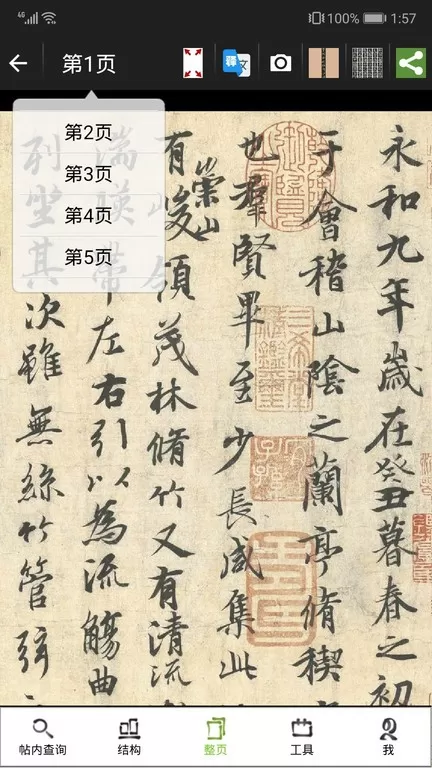 4G 100% 1:57
第1页
第2页
第3页
第4页
第5页
永和九年歲在癸丑暮春之初
于會稽山陰之蘭亭脩稧
也羣賢畢至少長咸集此
有崇山峻領茂林脩竹又有清流
湍暎帶左右引以為流觴曲
列坐其次雖無絲竹管弦
三希堂精鑑璽
宜子孫
帖内查询
结构
整页
工具
我